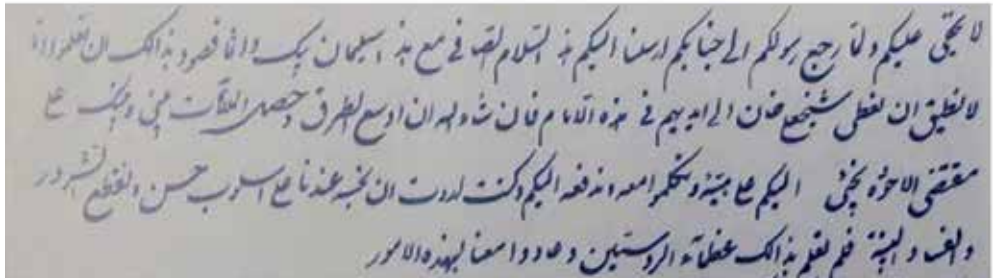 لا يخفى عليكم ولما رجع رسولكم الى جنابكم ارسلنا اليكم هذا السلام الصافي مع هذا سليمان بيك وانا قصود بذالك ان تعلموا انا
لا نطيق ان نعطي شيخعلي خان الى ايديهم في هذه الايام فان شاء الله ان اوسع الطرق وحصل الملاقات بيني وبينك على
مقتضى الاخوه يجئ اليكم على هيئة وتتكلموا معه وندفعه اليكم وكنت اردت ان نحبسه عندنا على اسلوب حسن وانقطع الشرور
والفساد والفتنة فلم تعلم بذالك عظماء الروسيين وعادوا معنا لهذه الامور